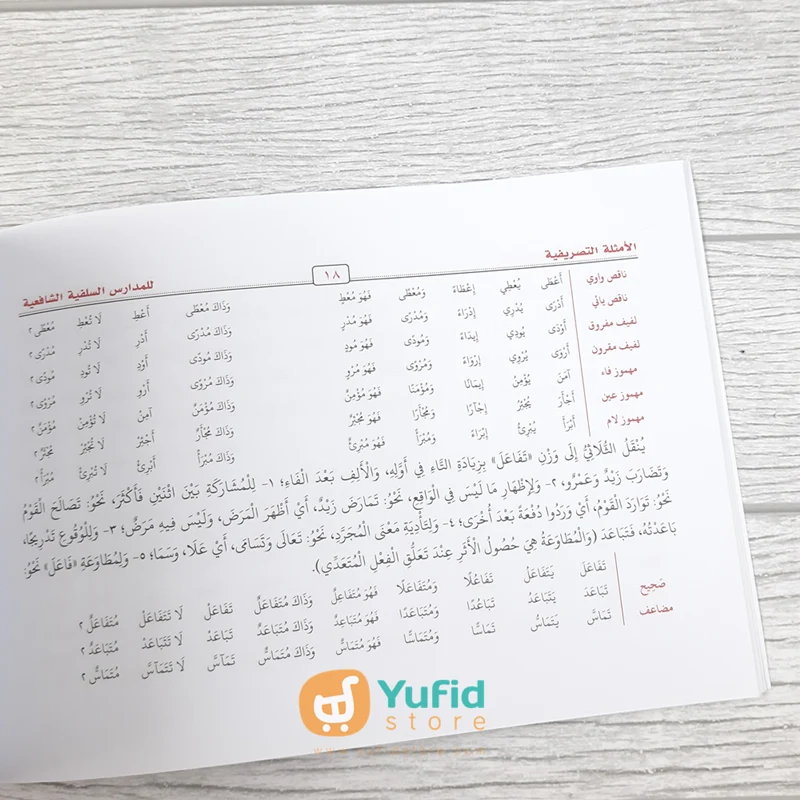 الأمثلة التصريفية ١٨ للمدارس السلفية الشافعية
ناقص واوي أَعْطَى يُعْطِي إِعْطَاءً وَمُعْطًى فَهُوَ مُعْطٍ وَذَاكَ مُعْطًى أَعْطِ لَا تُعْطِ مُعْطًى ٢
ناقص يائي أَدْرَى يُدْرِي إِدْرَاءً وَمُدْرًى فَهُوَ مُدْرٍ وَذَاكَ مُدْرًى أَدْرِ لَا تُدْرِ مُدْرًى ٢
لفيف مفروق أَوْدَى يُودِي إِيدَاءً وَمُودًى فَهُوَ مُودٍ وَذَاكَ مُودًى أَوْدِ لَا تُودِ مُودًى ٢
لفيف مقرون أَرْوَى يُرْوِي إِرْوَاءً وَمُرْوًى فَهُوَ مُرْوٍ وَذَاكَ مُرْوًى أَرْوِ لَا تُرْوِ مُرْوًى ٢
مهموز فاء آمَنَ يُؤْمِنُ إِيمَانًا وَمُؤْمَنًا فَهُوَ مُؤْمِنٌ وَذَاكَ مُؤْمَنٌ آمِنْ لَا تُؤْمِنْ مُؤْمَنٌ ٢
مهموز عين أَجْأَرَ يُجْئِرُ إِجْآرًا وَمُجْأَرًا فَهُوَ مُجْئِرٌ وَذَاكَ مُجْأَرٌ أَجْئِرْ لَا تُجْئِرْ مُجْأَرٌ ٢
مهموز لام أَبْرَأَ يُبْرِئُ إِبْرَاءً وَمُبْرَأً فَهُوَ مُبْرِئٌ وَذَاكَ مُبْرَأٌ أَبْرِئْ لَا تُبْرِئْ مُبْرَأٌ ٢
يُنْقَلُ الثُّلَاثِيُّ إِلَى وَزْنِ «تَفَاعَلَ» بِزِيَادَةِ التَّاءِ فِي أَوَّلِهِ، وَالْأَلِفِ بَعْدَ الْفَاءِ؛ ١- لِلْمُشَارَكَةِ بَيْنَ اثْنَيْنِ فَأَكْثَرَ، نَحْوُ: تَصَالَحَ الْقَوْمُ
وَتَضَارَبَ زَيْدٌ وَعَمْرٌو، ٢- وَلِإِظْهَارِ مَا لَيْسَ فِي الْوَاقِعِ، نَحْوُ: تَمَارَضَ زَيْدٌ، أَيْ أَظْهَرَ الْمَرَضَ، وَلَيْسَ فِيهِ مَرَضٌ؛ ٣- وَلِلْوُقُوعِ تَدْرِيجًا،
نَحْوُ: تَوَارَدَ الْقَوْمُ، أَيْ وَرَدُوا دُفْعَةً بَعْدَ أُخْرَى؛ ٤- وَلِتَأْدِيَةِ مَعْنَى الْمُجَرَّدِ، نَحْوُ: تَعَالَى وَتَسَامَى، أَيْ عَلَا، وَسَمَا؛ ٥- وَلِمُطَاوَعَةِ «فَاعَلَ» نَحْوُ:
بَاعَدْتُهُ، فَتَبَاعَدَ (وَالْمُطَاوَعَةُ هِيَ حُصُولُ الْأَثَرِ عِنْدَ تَعَلُّقِ الْفِعْلِ الْمُتَعَدِّي).
صَحِيح تَفَاعَلَ يَتَفَاعَلُ تَفَاعُلًا وَمُتَفَاعَلًا فَهُوَ مُتَفَاعِلٌ وَذَاكَ مُتَفَاعَلٌ تَفَاعَلْ لَا تَتَفَاعَلْ مُتَفَاعَلٌ ٢
تَبَاعَدَ يَتَبَاعَدُ تَبَاعُدًا وَمُتَبَاعَدًا فَهُوَ مُتَبَاعِدٌ وَذَاكَ مُتَبَاعَدٌ تَبَاعَدْ لَا تَتَبَاعَدْ مُتَبَاعَدٌ ٢
مضاعف تَمَاسَّ يَتَمَاسُّ تَمَاسًّا وَمُتَمَاسًّا فَهُوَ مُتَمَاسٌّ وَذَاكَ مُتَمَاسٌّ تَمَاسَّ لَا تَتَمَاسَّ مُتَمَاسٌّ ٢
Yufid
store